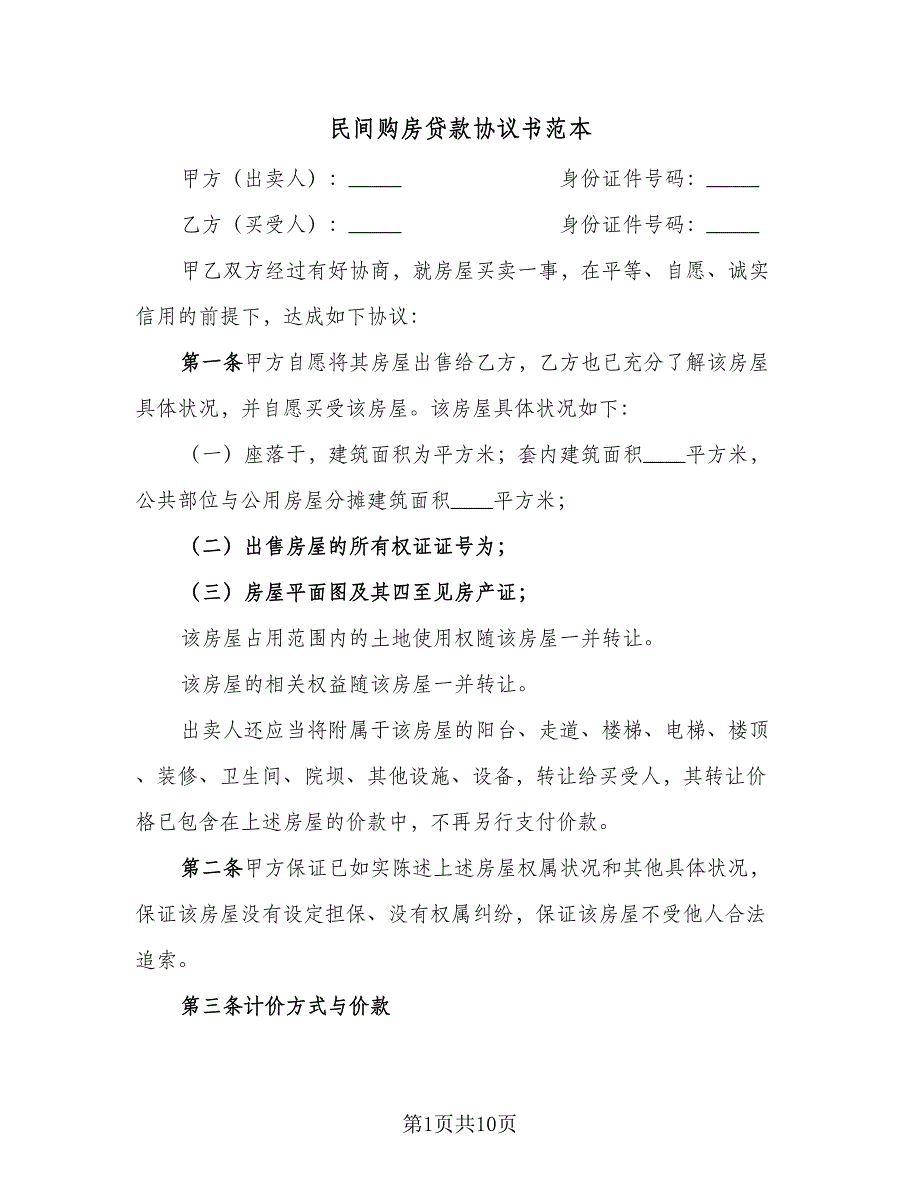 民间购房贷款协议书范本
甲方（出卖人）：_____ 身份证件号码：_____
乙方（买受人）：_____ 身份证件号码：_____
甲乙双方经过有好协商，就房屋买卖一事，在平等、自愿、诚实
信用的前提下，达成如下协议：
第一条甲方自愿将其房屋出售给乙方，乙方也已充分了解该房屋
具体状况，并自愿买受该房屋。该房屋具体状况如下：
（一）座落于，建筑面积为平方米；套内建筑面积____平方米，
公共部位与公用房屋分摊建筑面积____平方米；
（二）出售房屋的所有权证证号为；
（三）房屋平面图及其四至见房产证；
该房屋占用范围内的土地使用权随该房屋一并转让。
该房屋的相关权益随该房屋一并转让。
出卖人还应当将附属于该房屋的阳台、走道、楼梯、电梯、楼顶
、装修、卫生间、院坝、其他设施、设备，转让给买受人，其转让价
格已包含在上述房屋的价款中，不再另行支付价款。
第二条甲方保证已如实陈述上述房屋权属状况和其他具体状况，
保证该房屋没有设定担保、没有权属纠纷，保证该房屋不受他人合法
追索。
第三条计价方式与价款
第1页共10页